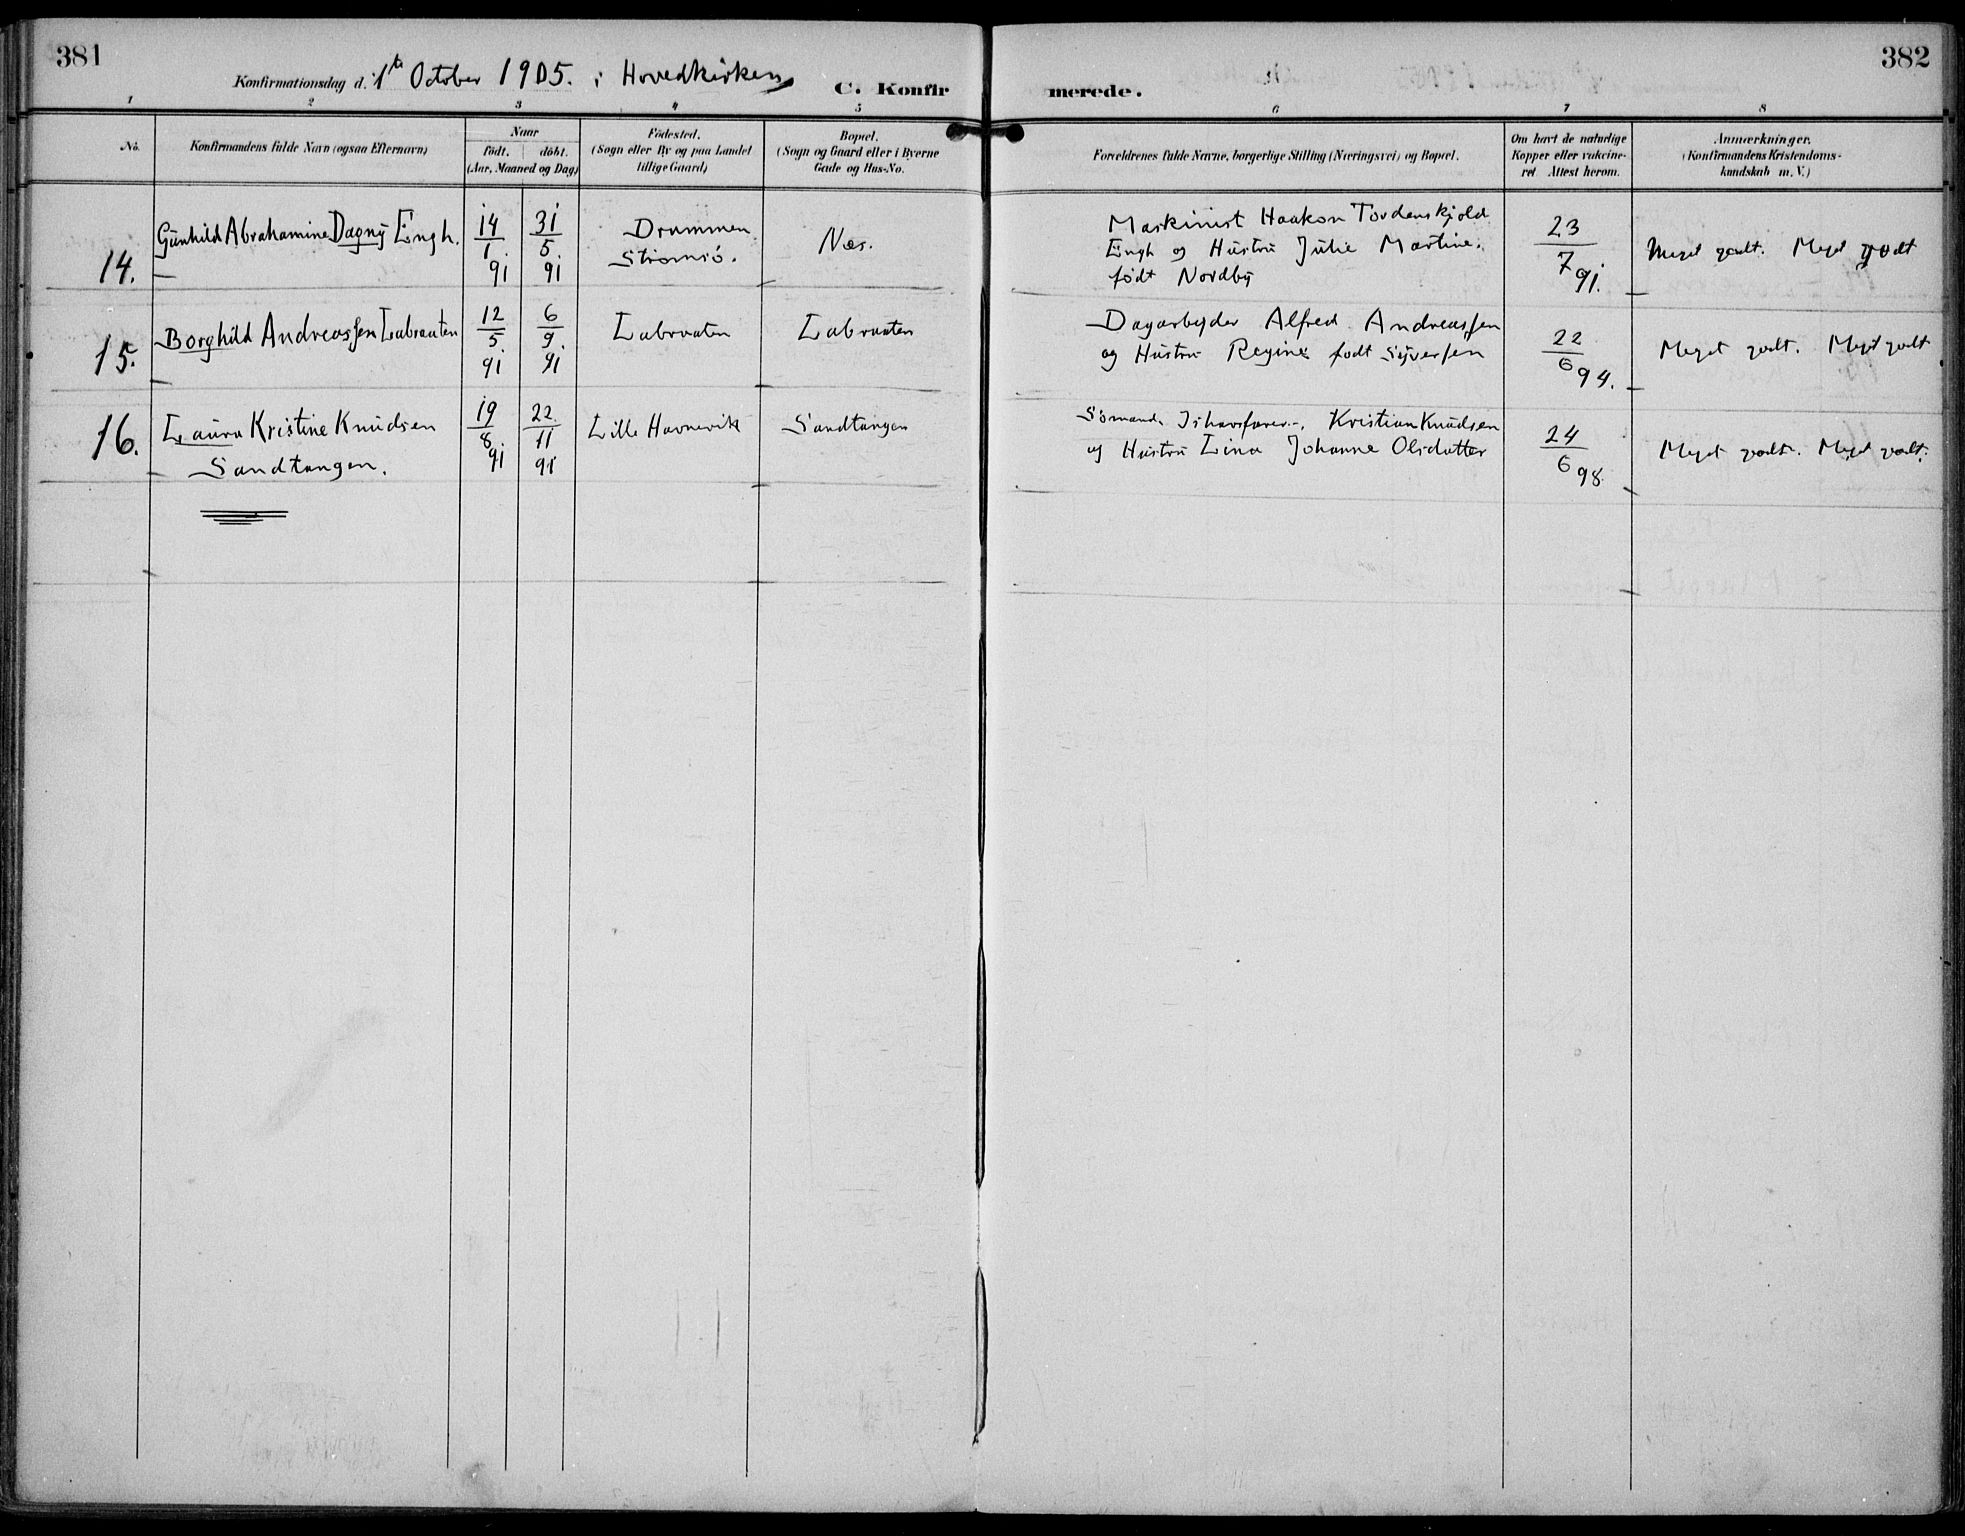 381
382
Konfirmationsdag d. 1ste October 1905. i Hovedkirken
C. Konfirmerede.
1 2 3 4 5 6 7 8
No.
Konfirmandens fulde Navn (ogsaa Efternavn)
Naar
født. døbt.
(Aar, Maaned og Dag)
Födested.
(Sogn eller By og paa Landet
tillige Gaard)
Bopæl.
(Sogn og Gaard eller i Byerne
Gade og Hus-No.
Forældrenes fulde Navne, borgerlige Stilling (Næringsvei) og Bopæl.
Om havt de naturlige
Kopper eller vakcine-
ret. Attest herom.
Anmærkninger.
(Konfirmandens Kristendoms-
kundskab m. V.)
14.
Gunhild Abrahamine Dagny Engh.
14/1 91
31/5 91
Drammen
Strømsö.
Næs.
Maskinist Haakon Tordenskjold
Engh og Hustru Julie Martine.
født Nordby
23/7 91.
Meget godt. Meget godt
15.
Borghild Andreassen Labraaten
12/5 91
6/9. 91
Labraaten
Labraaten
Dagarbejder Alfred Andreassen
og Hustru Regine født Syversen
22/6 94.
Meget godt. Meget godt
16.
Laura Kristine Knudsen
Sandtangen.
19/8. 91
22/11 91
Lille Havnevik
Sandtangen
Sømand, Ishavsfarer, Kristian Knudsen
og Hustru Lina Johanne Olsdatter
24/6 98.
Meget godt. Meget godt.